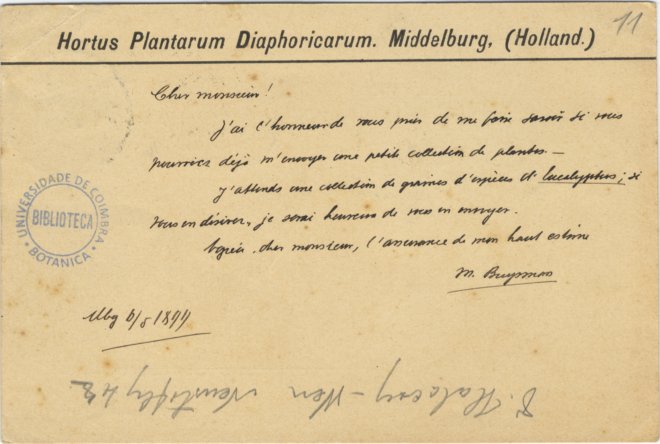 11
Hortus Plantarum Diaphoricarum. Middelburg, (Holland.)
Cher monsieur!
J'ai l'honneur de vous prier de me faire savoir si vous
pourriez déjà m'envoyer une petite collection de plantes.—
J'attends une collection de graines d'espèces d'Eucalyptus; si
vous en désirez, je serai heureux de vous en envoyer.
Agréez, cher monsieur, l'assurance de mon haut estime
M. Buysman
UNIVERSIDADE DE COIMBRA
BIBLIOTECA
BOTANICA
Mbg 6/8 1899
Halacsy – Wien